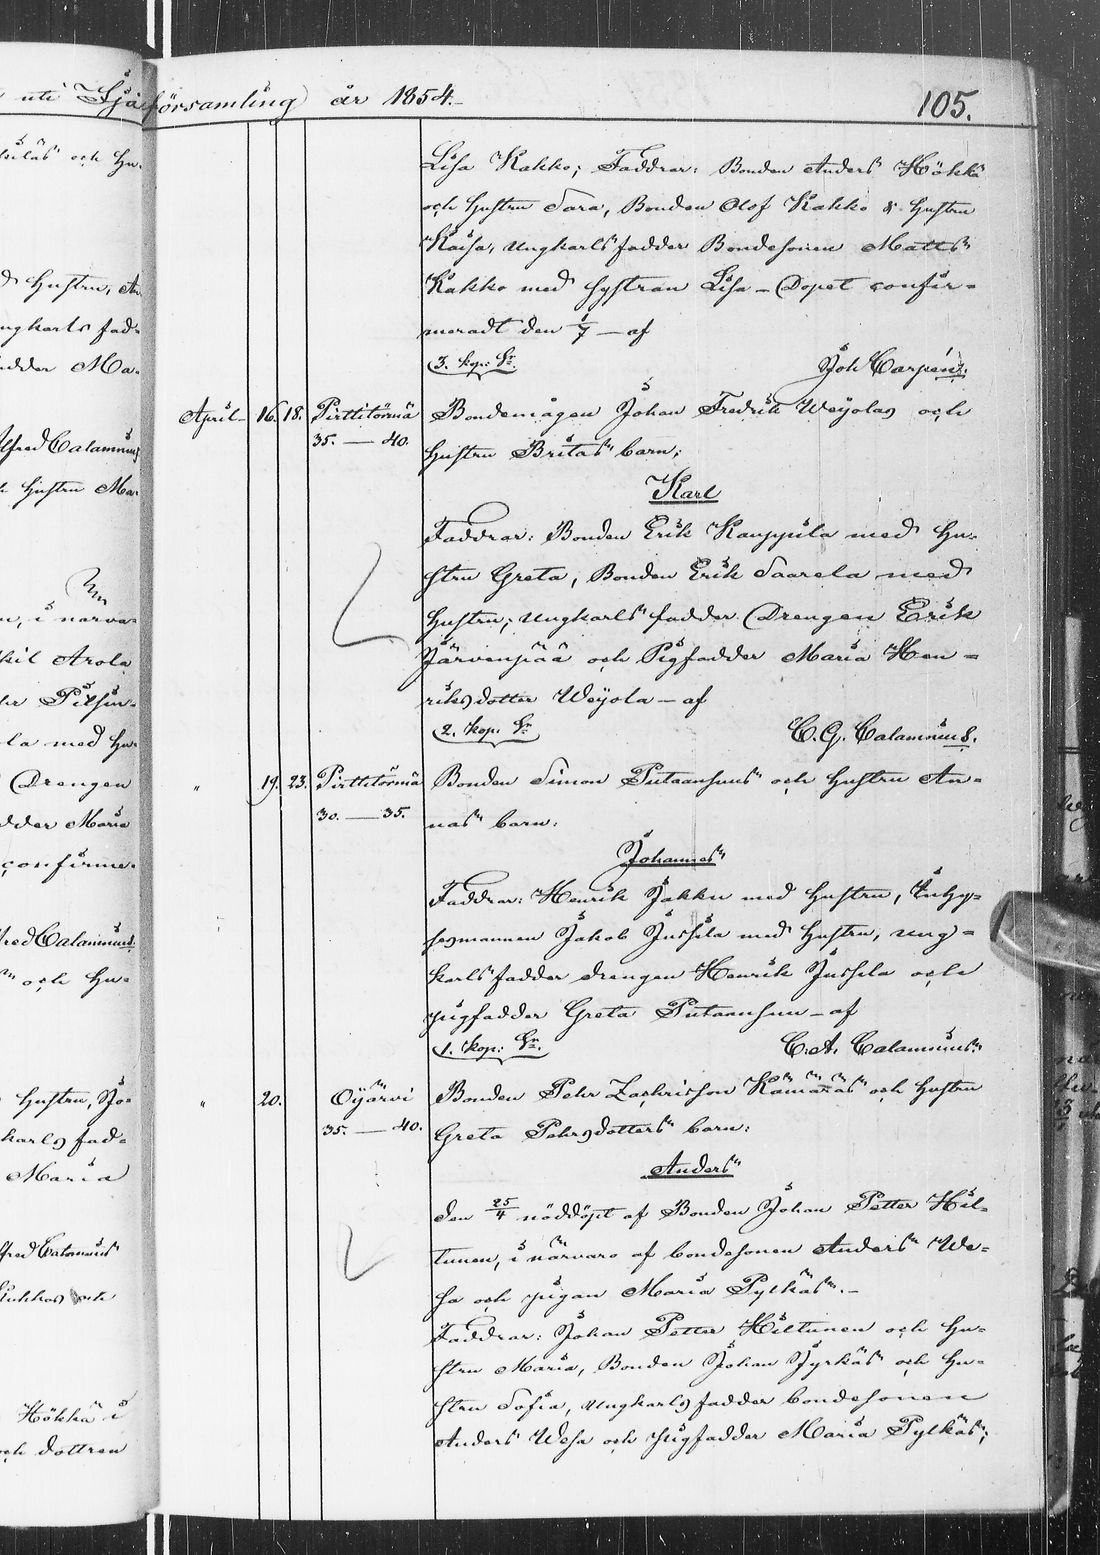 uti Sjä
församling år 1854.
105.
och Hu-
Hustru, An-
ungkarls fad-
fadder Ma-
Alfred Calamnius
Hustru Ma-
i närva-
Arola
med Hu-
Drengen
fadder Maria
confirme-
Alfred Calamnius.
och Hu-
Hustru, Jo-
karls fad-
Maria
Alfred Calamnius
och
Hökkä i
och dottren
Lisa Kakko; Faddrar: Bonden Anders Hökkä
och Hustru Sara, Bonden Olof Kakko & Hustru
Kaisa, Ungkarls fadder Bondesonen Matts
Kakko med systran Lisa – Dopet confir-
meradt den 1/7 — af
3. kop: Sr.
Joh Carpén.
April 16. 18. Pirttitörmä
35. — 40.
Bondemågen Johan Fredrik Weijolas och
Hustru Britas barn;
Karl
Faddrar: Bonden Erik Kauppila med Hu-
stru Greta, Bonden Erik Saarela med
Hustru; Ungkarls fadder Drengen Erik
Järvenpää och Pigfadder Maria Hen-
riksdotter Weijola — af
2. kop. Sr.
C. G. Calamnius.
" 19. 23. Pirttitörmä
30. — 35.
Bonden Simon Putaansuus och Hustru An-
nas barn:
Johannes
Faddrar: Henrik Jakku med Hustru, Inhy-
sesmannen Jakob Jussila med Hustru, Ung-
karls fadder drengen Henrik Jussila och
pigfadder Greta Putaansuu — af
1. kop: Sr.
C. A. Calamnius.
" 20. Oijärvi
35. — 40.
Bonden Pehr Zachrisson Kämäräs och Hustru
Greta Pehrsdotters barn:
Anders
den 25/4 nöddöpt af Bonden Johan Petter Hil-
tunen, i närvaro af bondesonen Anders We-
sa och pigan Maria Pylkäs. –
Faddrar: Johan Petter Hiltunen och Hu-
stru Maria, Bonden Johan Jyrkäs och Hu-
stru Sofia, Ungkarls fadder bondesonen
Anders Wesa och Pigfadder Maria Pylkäs;